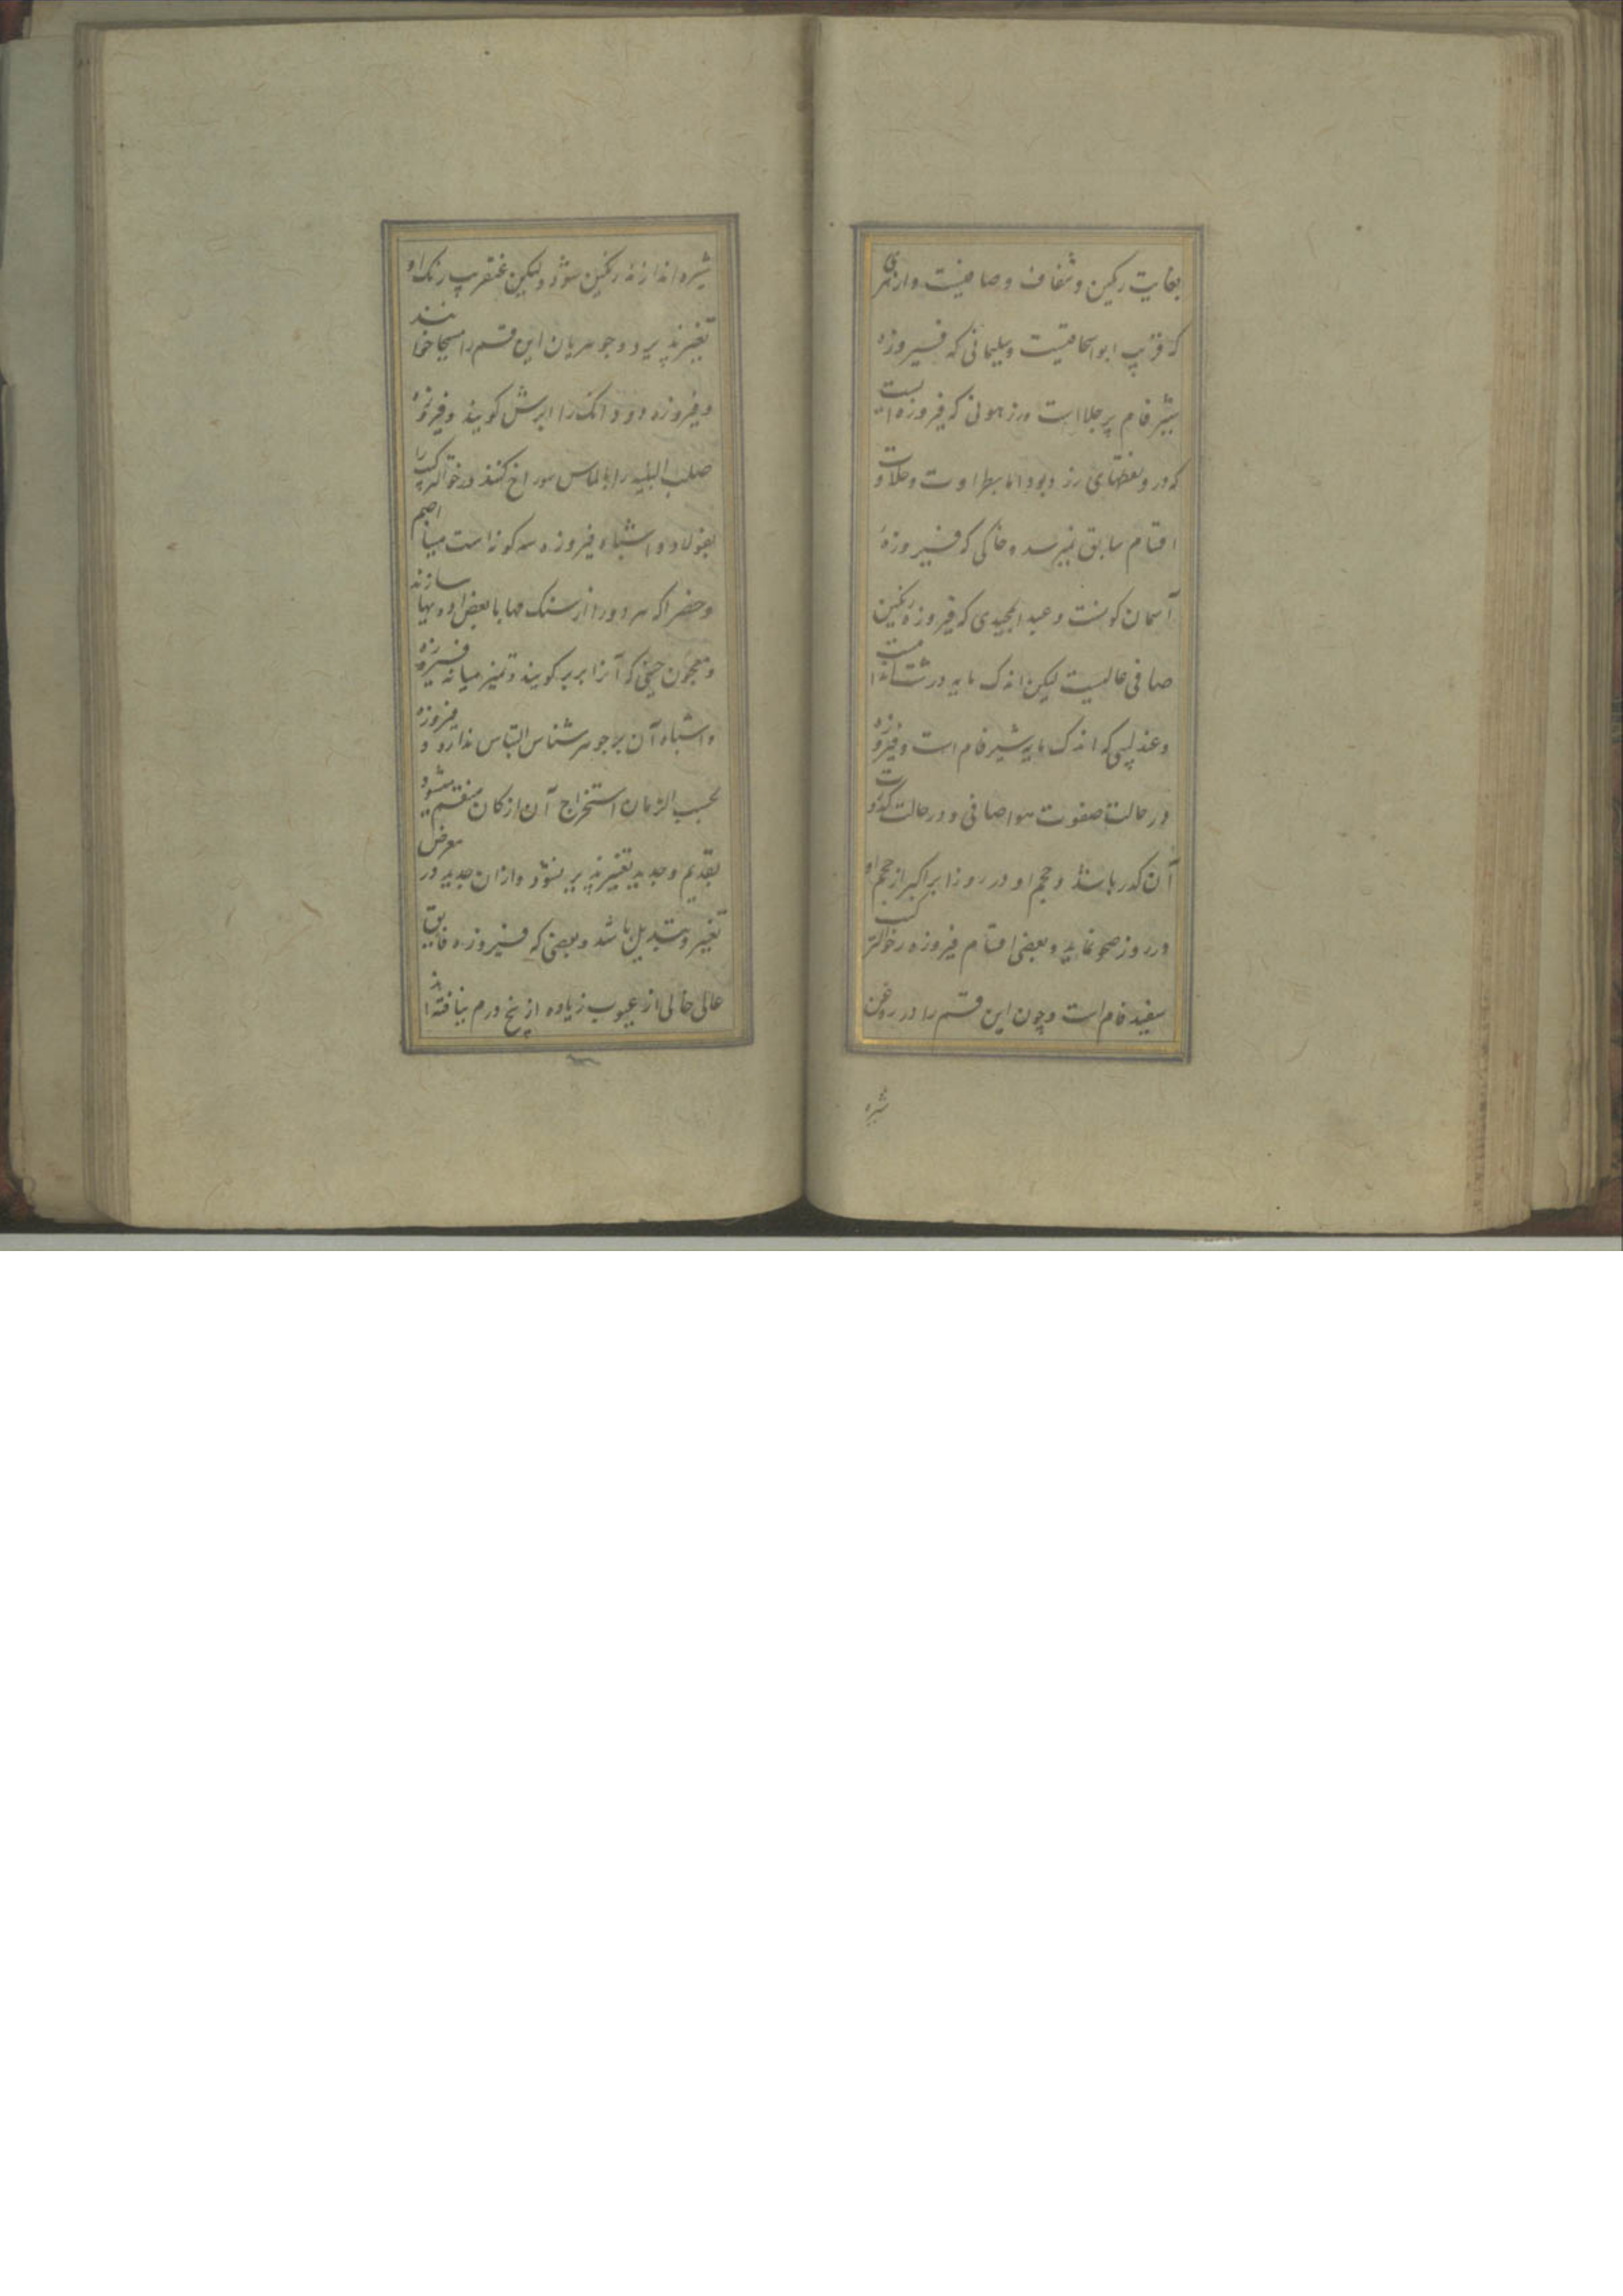 بغایت رنکین و شفاف و صافیست و ازهری
که قریب ابواسحاقیست و سلیمانی که فیروزه
شیر فام پر جلا است و زرهونی که فیروزه ایست
که در و نقطهای زر بود اما بطراوت و حلاوت
اقسام سابق نمیرسد و خاکی که فیروزهٔ
آسمان کونست و عبد المجیدی که فیروزه رنکین
صافی عالیست لیکن اندک مایه درشت اندامست
و عندلیبی که اندک مایه شیر فام است و فیروزه
در حالت صفوت هوا صافی و در حالت کدورت
آن کدر باشد و حجم او در روز ابر اکبر از حجم او
در روز صحو نماید و بعضی اقسام فیروزه رخوالترکیب
سفید فام است و چون این قسم را در روغن
شیره
شیره اندازند رنکین شود و لیکن عنقریب رنک او
تغیر پذیرد و جوهریان این قسم را مسیحا خوانند
و فیروزه دو دانک را ابرش کویند و فیروزه
صلب البنیه را بالماس سوراخ کنند و رخوالترکیب را
بفولاد و اشباه فیروزه سه کونه است مینا
و خضرا که هر دو را از سنک مها با بعض ادویها سازند
و معجون چینی که آنرا بربر کویند و تمیز میانه فیروزه
و اشباه آن بر جوهر شناس التباس ندارد و فیروزه
بحسب الزمان استخراج آن از کان منقسم میشود
بقدیم و جدید تغیر پذیر نشود و ازان جدید در معرض
تغییر و تبدیل باشد و بعضی که فیروزه فایق
عالی خالی از عیوب زیاده از پنج درم نیافته اند